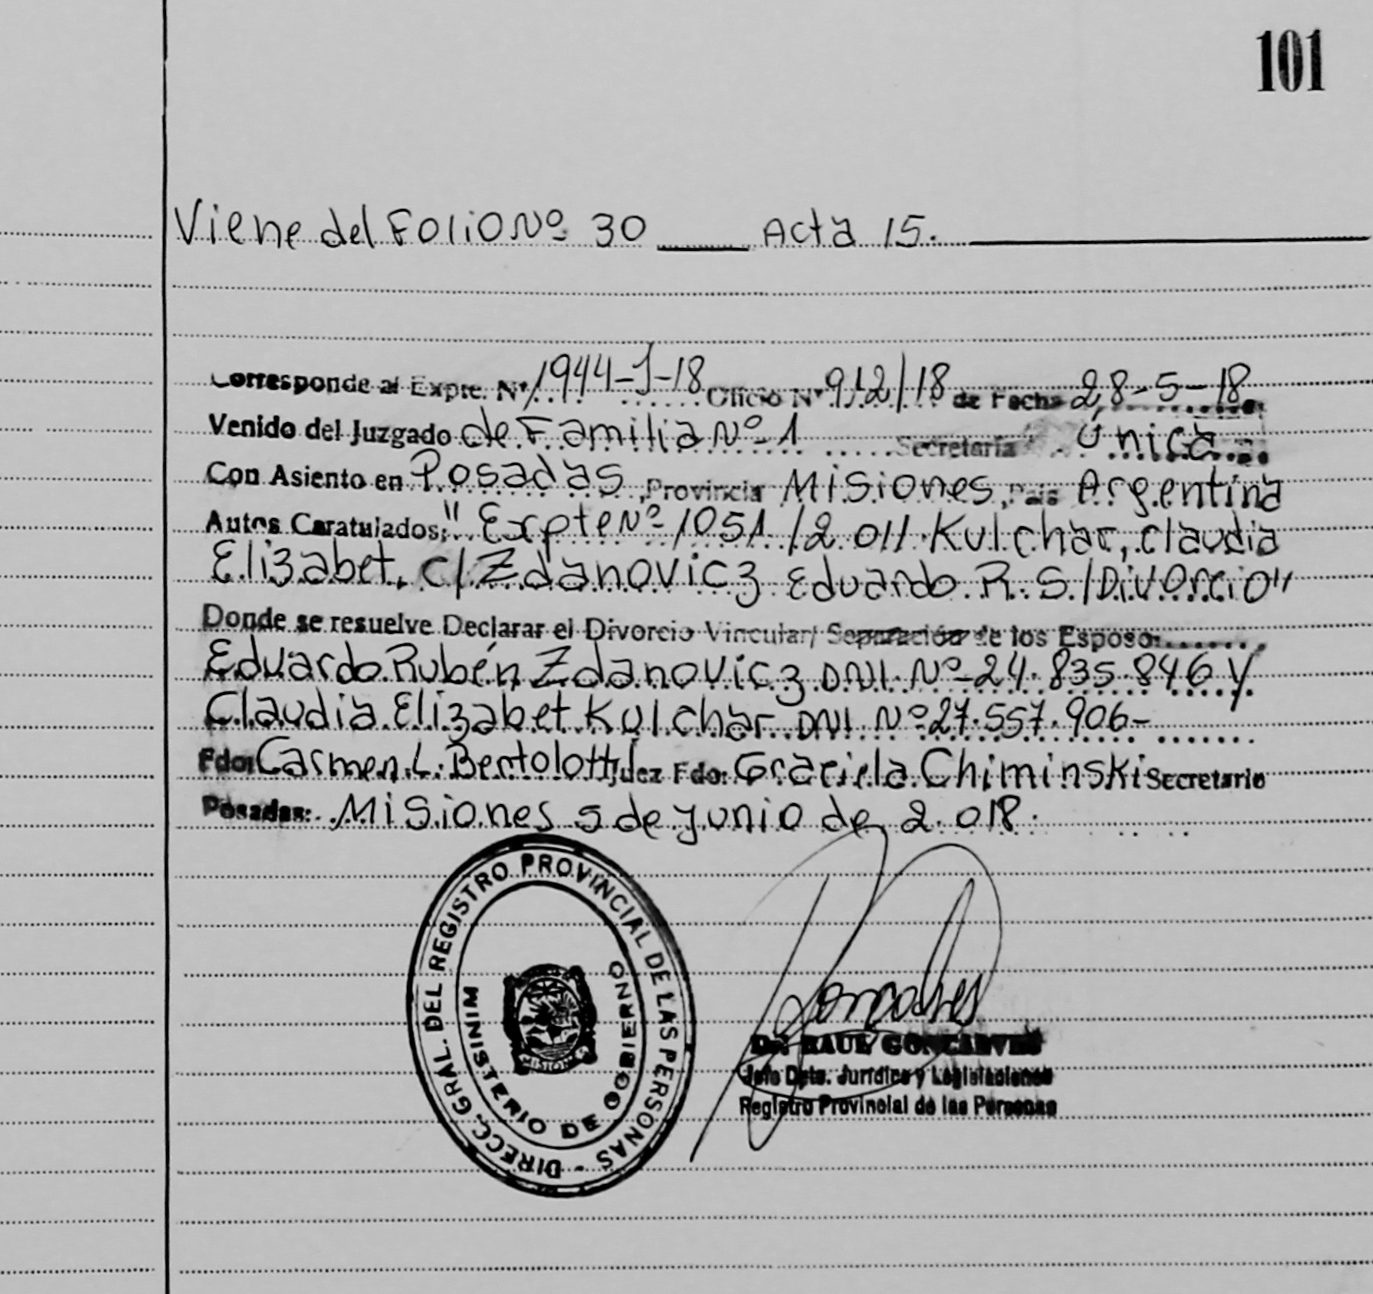 101
Viene del Folio Nº 30 ____ Acta 15.
Corresponde al Expte. Nº 1944-J-18 Oficio Nº 912/18 de Fecha 28-5-18
Venido del Juzgado de Familia Nº 1 Secretaría Única
Con Asiento en Posadas, Provincia Misiones, País Argentina
Autos Caratulados: "Expte Nº 1051/2.011 Kulchar, Claudia
Elizabet. c/ Zdanovicz Eduardo R. S./Divorcio"
Donde se resuelve Declarar el Divorcio Vincular/ Separación de los Esposo:
Eduardo Rubén Zdanovicz DNI. Nº-24.835.846 y
Claudia Elizabet Kulchar DNI Nº 27.557.906-
Fdo: Carmen L. Bertolotti Juez Fdo: Graciela Chiminski Secretario
Posadas: Misiones 5 de junio de 2.018.
DIRECC. GRAL. DEL REGISTRO PROVINCIAL DE LAS PERSONAS -
MINISTERIO DE GOBIERNO
MISIONES
Goncalves
Dr. RAUL GONCALVES
Jefe Dpto. Jurídico y Legislaciones
Registro Provincial de las Personas